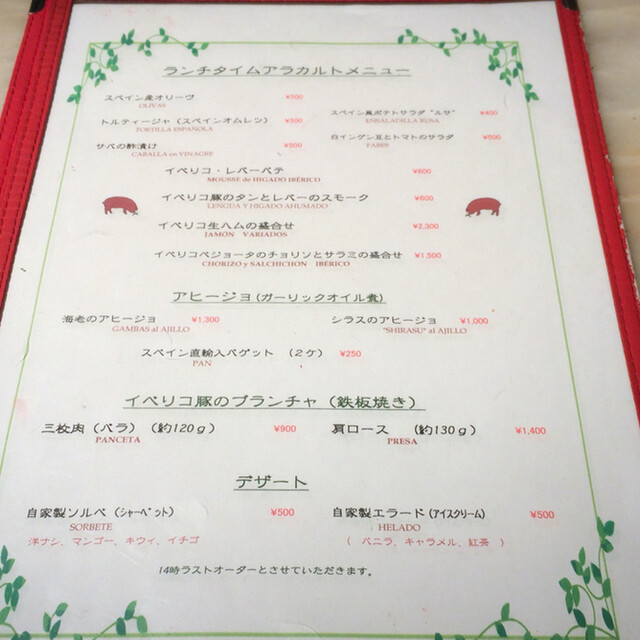 ランチタイムアラカルトメニュー
スペイン産オリーヴ ¥500
OLIVAS
スペイン風ポテトサラダ "ルサ" ¥400
ENSALADILLA RUSA
トルティージャ (スペインオムレツ) ¥500
TORTILLA ESPAÑOLA
白インゲン豆とトマトのサラダ ¥500
FABES
サバの酢漬け ¥500
CABALLA en VINAGRE
イベリコ・レバーパテ ¥600
MOUSSE de HIGADO IBÉRICO
イベリコ豚のタンとレバーのスモーク ¥600
LENGUA Y HIGADO AHUMADO
イベリコ生ハムの盛合せ ¥2,300
JAMON VARIADOS
イベリコベジョータのチョリソとサラミの盛合せ ¥1,500
CHORIZO y SALCHICHON IBÉRICO
アヒージョ(ガーリックオイル煮)
海老のアヒージョ ¥1,300
GAMBAS al AJILLO
シラスのアヒージョ ¥1,000
"SHIRASU" al AJILLO
スペイン直輸入バゲット (2ケ) ¥250
PAN
イベリコ豚のプランチャ (鉄板焼き)
三枚肉 (バラ) (約120g) ¥900
PANCETA
肩ロース (約130g) ¥1,400
PRESA
デザート
自家製ソルベ (シャーベット) ¥500
SORBETE
洋ナシ、マンゴー、キウィ、イチゴ
自家製エラード (アイスクリーム) ¥500
HELADO
( バニラ、キャラメル、紅茶 )
14時ラストオーダーとさせていただきます。